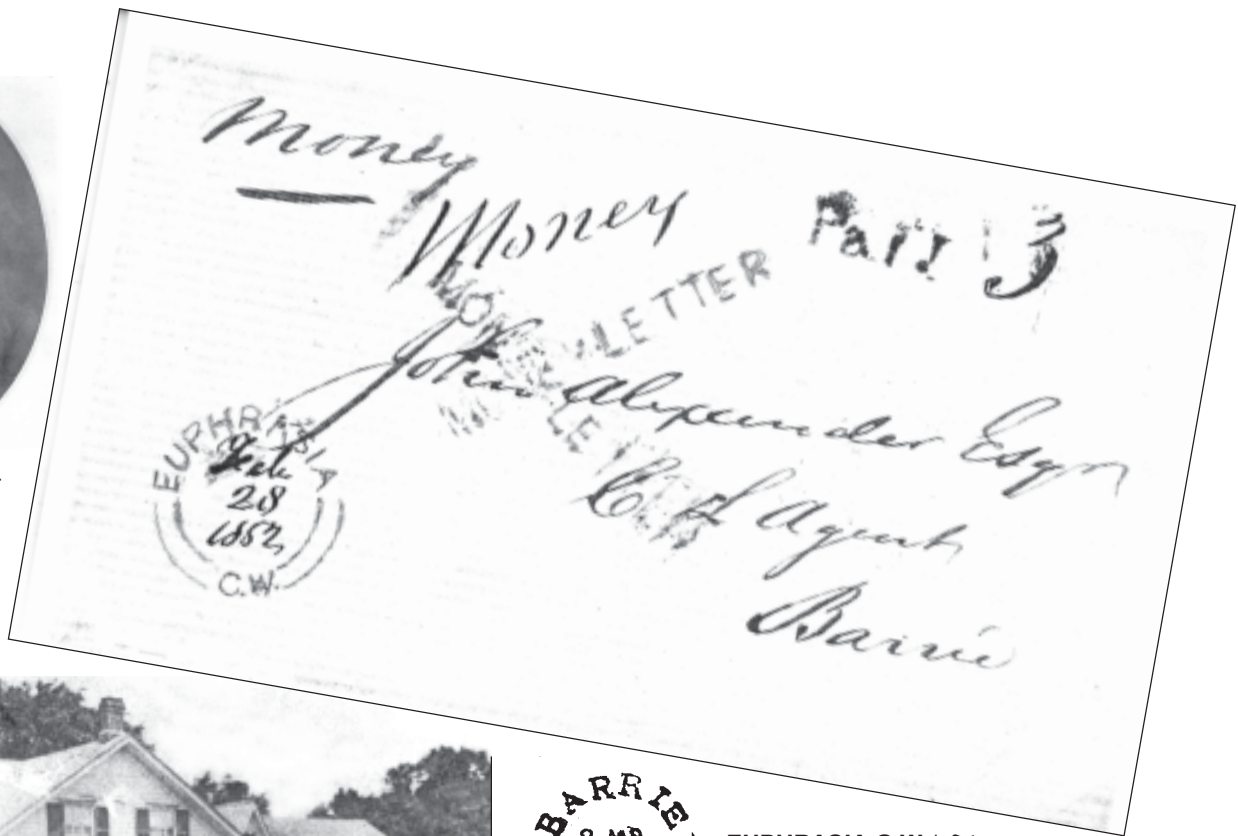 Money
Money
Paid 3
LETTER
John Alexander Esqr
C L Agent
Barrie
EUPHRASIA
Feb
28
1852
C.W.
BARRIE